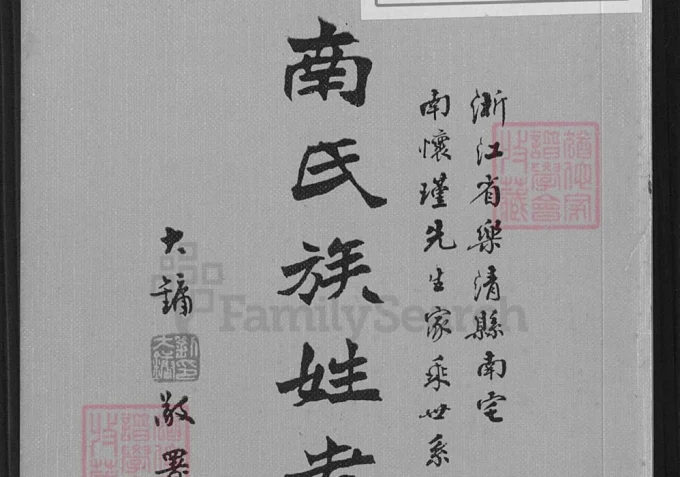 浙江省樂清縣南宅
南懷瑾先生家乘世系
南氏族姓考
大鏞
敬署
FamilySearch